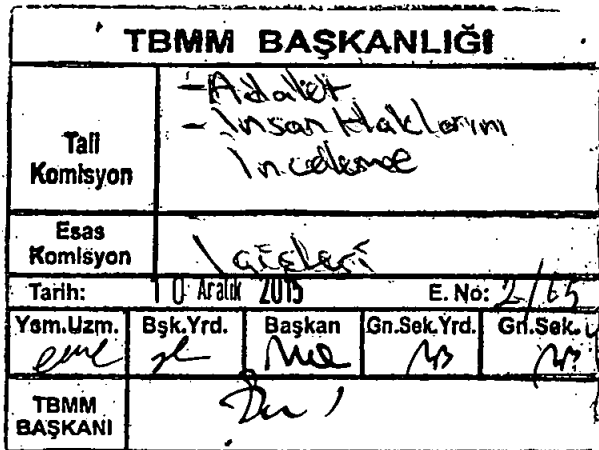 TBMM BAŞKANLIĞI
Tali Komisyon
- Adalet
- İnsan Haklarını
İnceleme
Esas Komisyon
İçişleri
Tarih: 10 Aralık 2015 E. No: 2/65
Ysm.Uzm. Bşk.Yrd. Başkan Gn.Sek.Yrd. Gn.Sek.
TBMM BAŞKANI